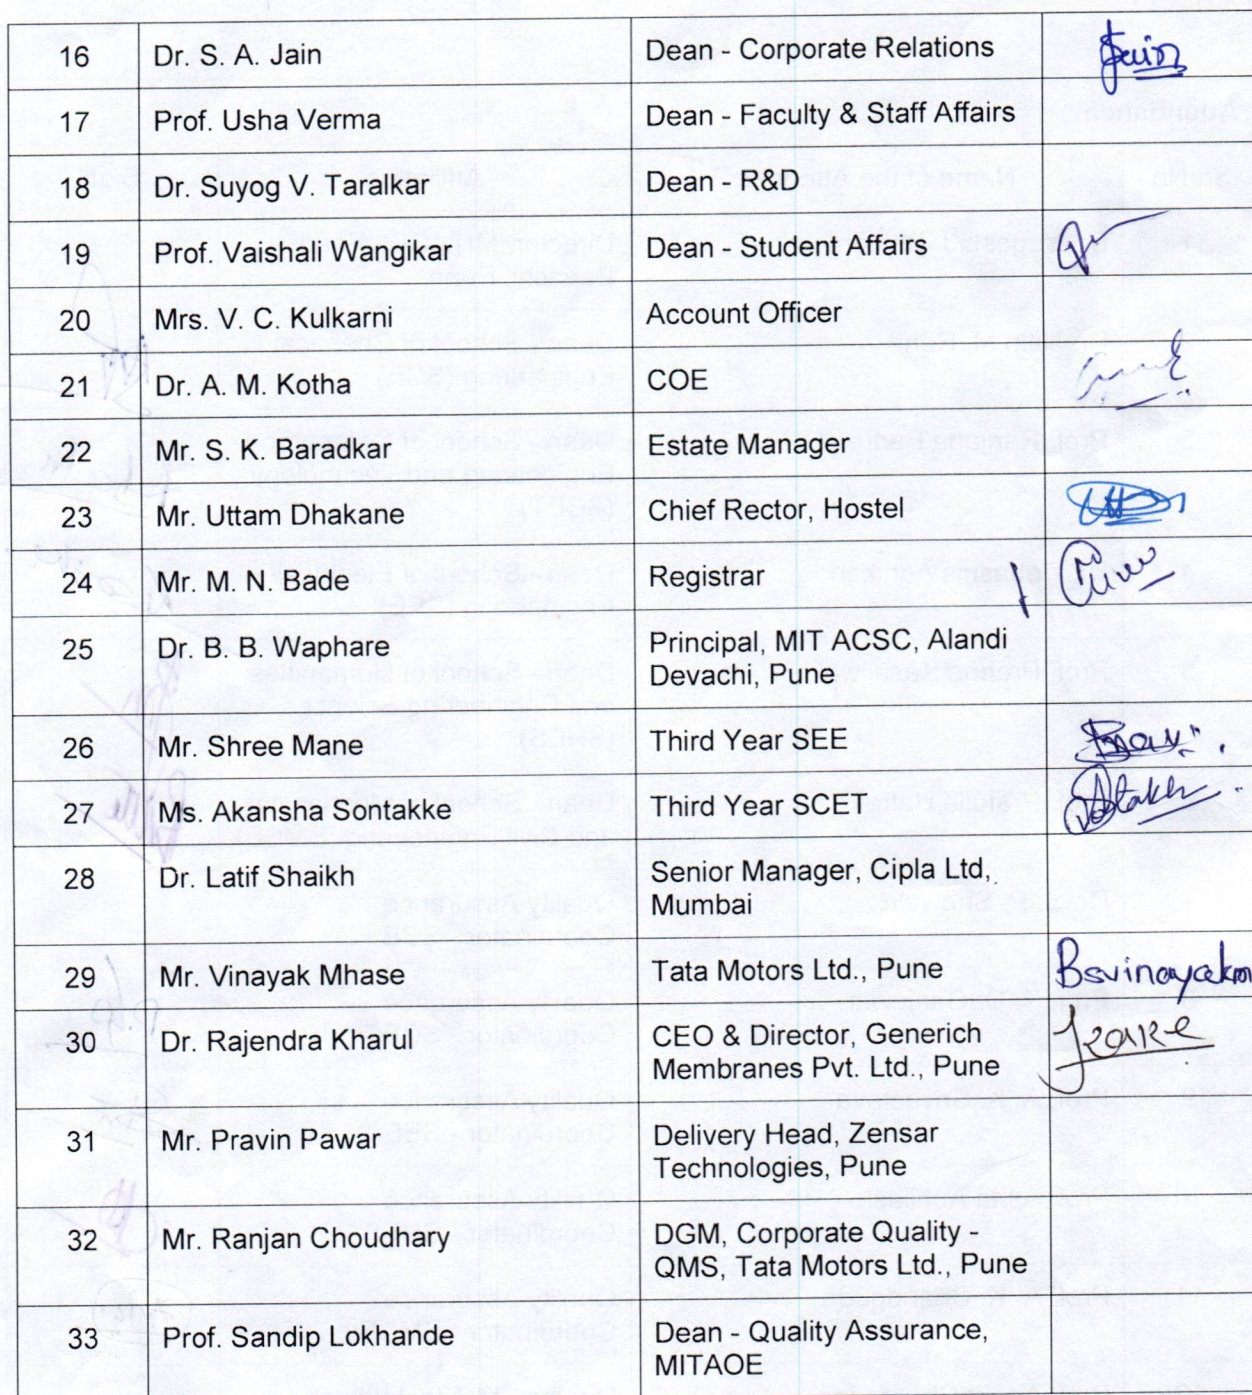 16 Dr. S. A. Jain Dean - Corporate Relations Jain
17 Prof. Usha Verma Dean - Faculty & Staff Affairs
18 Dr. Suyog V. Taralkar Dean - R&D
19 Prof. Vaishali Wangikar Dean - Student Affairs
20 Mrs. V. C. Kulkarni Account Officer
21 Dr. A. M. Kotha COE
22 Mr. S. K. Baradkar Estate Manager
23 Mr. Uttam Dhakane Chief Rector, Hostel
24 Mr. M. N. Bade Registrar
25 Dr. B. B. Waphare Principal, MIT ACSC, Alandi
Devachi, Pune
26 Mr. Shree Mane Third Year SEE
27 Ms. Akansha Sontakke Third Year SCET
28 Dr. Latif Shaikh Senior Manager, Cipla Ltd,
Mumbai
29 Mr. Vinayak Mhase Tata Motors Ltd., Pune
30 Dr. Rajendra Kharul CEO & Director, Generich
Membranes Pvt. Ltd., Pune
31 Mr. Pravin Pawar Delivery Head, Zensar
Technologies, Pune
32 Mr. Ranjan Choudhary DGM, Corporate Quality -
QMS, Tata Motors Ltd., Pune
33 Prof. Sandip Lokhande Dean - Quality Assurance,
MITAOE